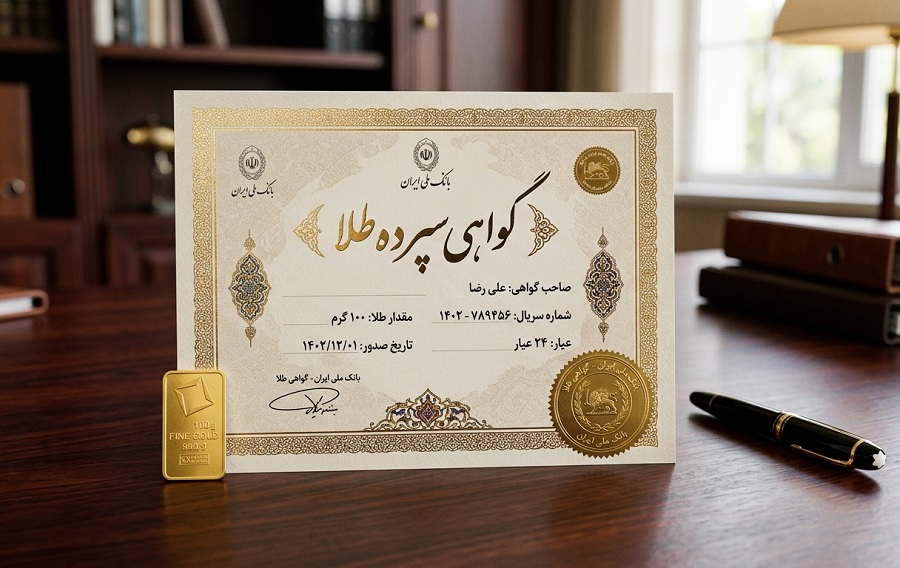 بانک ملی ایران
بانک ملی ایران
گواهی سپرده طلا
صاحب گواهی: علی رضا
شماره سریال: ۷۸۹۴۵۶ - ۱۴۰۲
مقدار طلا: ۱۰۰ گرم
عیار: ۲۴ عیار
تاریخ صدور: ۱۴۰۲/۱۲/۰۱
بانک ملی ایران - گواهی طلا
بانک ملی ایران - گواهی طلا
بانک ملی ایران
100 g
FINE GOLD